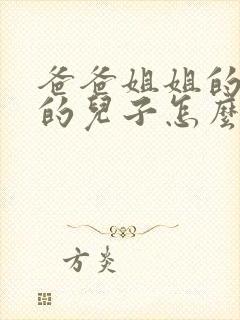 爸爸姐姐的
的兒子怎麼
方炎